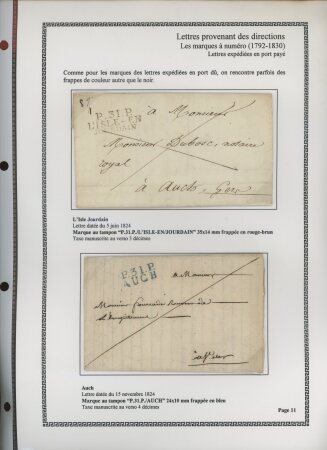 Lettres provenant des directions
Les marques à numéro (1792-1830)
Lettres expédiées en port payé
Comme pour les marques des lettres expédiées en port dû, on rencontre parfois des
frappes de couleur autre que le noir.
P.31.P.
L'ISLE-EN
JOURDAIN
à Monsieur
Monsieur Dubosc, notaire
royal
à Auch, Gers
L'Isle Jourdain
Lettre datée du 5 juin 1824
Marque au tampon "P.31.P./L'ISLE-EN/JOURDAIN" 35x14 mm frappée en rouge-brun
Taxe manuscrite au verso 3 décimes
P.31.P.
AUCH
a Monsieur
Monsieur
Auch
Lettre datée du 15 novembre 1824
Marque au tampon "P.31.P./AUCH" 24x10 mm frappée en bleu
Taxe manuscrite au verso 4 décimes
Page 11